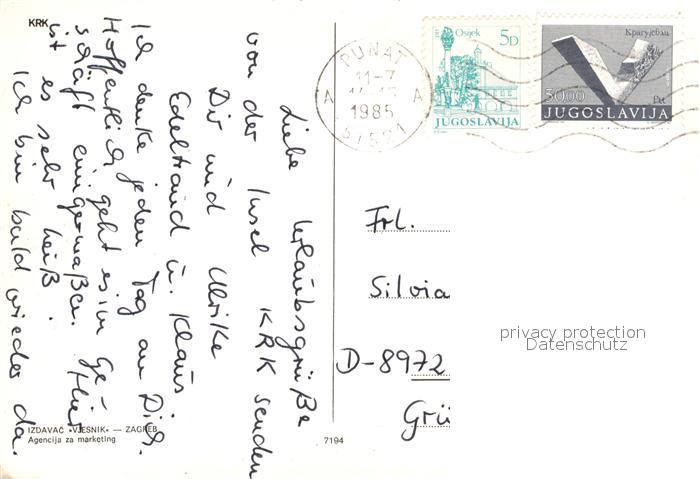 KRK
Liebe Urlaubsgrüße
von der Insel KRK senden
Dir und Ulrike
Edeltraud u. Klaus.
Ich denke jeden Tag an Dich.
Hoffentlich geht es im Ge-
schäft einigermaßen. Hier
ist es sehr heiß.
Ich bin bald wieder da.
IZDAVAČ »VJESNIK« — ZAGREB
Agencija za marketing
7194
PUNAT
11-7
1985
A A
51521
Osijek
5D
JUGOSLAVIJA
Крагујевац
30.00
JUGOSLAVIJA
Frl.
Silvia
D-8972
Grü
privacy protection
Datenschutz